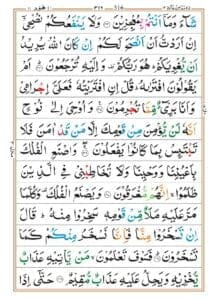 شَآءَ وَمَآ اَنْتُمْ بِمُعْجِزِيْنَ ۝ وَلَا يَنْفَعُكُمْ نُصْحِيْٓ
اِنْ اَرَدْتُّ اَنْ اَنْصَحَ لَكُمْ اِنْ كَانَ اللّٰهُ يُرِيْدُ
اَنْ يُّغْوِيَكُمْ هُوَ رَبُّكُمْ وَاِلَيْهِ تُرْجَعُوْنَ ۝ اَمْ
يَقُوْلُوْنَ افْتَرٰىهُ قُلْ اِنِ افْتَرَيْتُهٗ فَعَلَيَّ اِجْرَامِيْ
وَاَنَا بَرِيْٓءٌ مِّمَّا تُجْرِمُوْنَ ۝ وَاُوْحِيَ اِلٰى نُوْحٍ
اَنَّهٗ لَنْ يُّؤْمِنَ مِنْ قَوْمِكَ اِلَّا مَنْ قَدْ اٰمَنَ فَلَا
تَبْتَئِسْ بِمَا كَانُوْا يَفْعَلُوْنَ ۝ وَاصْنَعِ الْفُلْكَ
بِاَعْيُنِنَا وَوَحْيِنَا وَلَا تُخَاطِبْنِيْ فِي الَّذِيْنَ
ظَلَمُوْا اِنَّهُمْ مُّغْرَقُوْنَ ۝ وَيَصْنَعُ الْفُلْكَ وَكُلَّمَا
مَرَّ عَلَيْهِ مَلَاٌ مِّنْ قَوْمِهٖ سَخِرُوْا مِنْهُ قَالَ
اِنْ تَسْخَرُوْا مِنَّا فَاِنَّا نَسْخَرُ مِنْكُمْ كَمَا
تَسْخَرُوْنَ ۝ فَسَوْفَ تَعْلَمُوْنَ مَنْ يَّاْتِيْهِ عَذَابٌ
يُّخْزِيْهِ وَيَحِلُّ عَلَيْهِ عَذَابٌ مُّقِيْمٌ ۝ حَتّٰٓى اِذَا